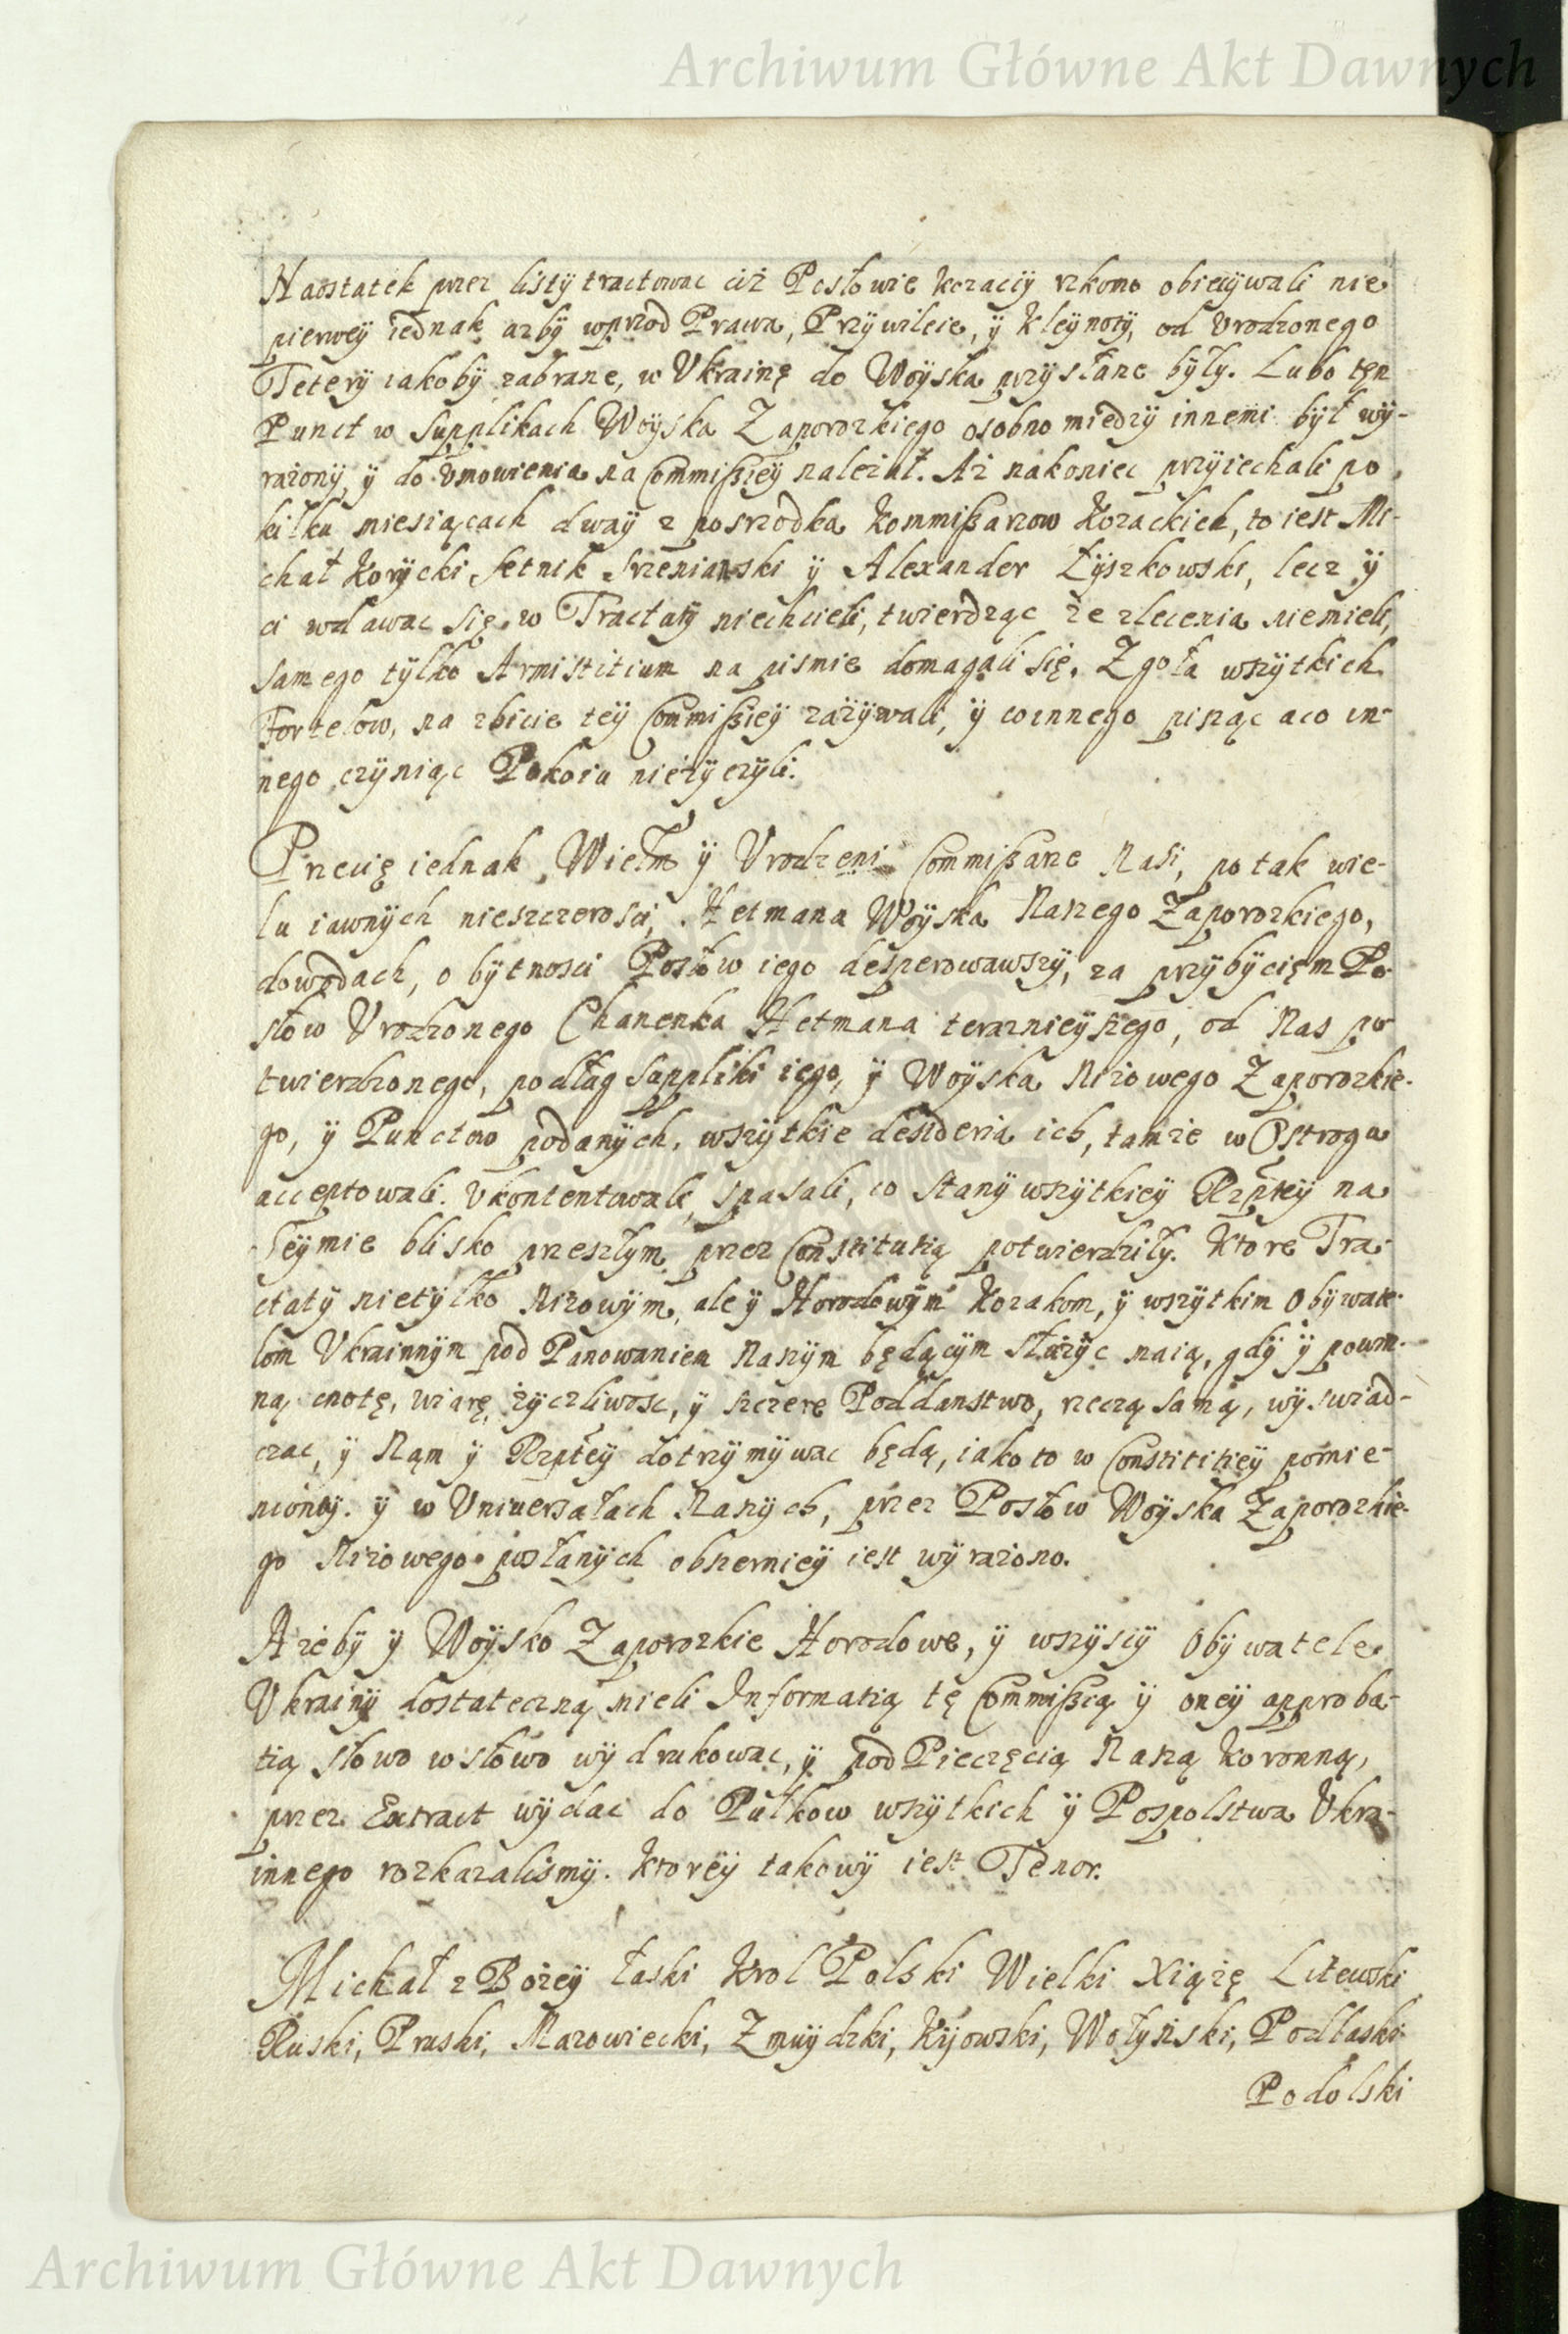 Archiwum Główne Akt Dawnych
Naostatek przez listÿ tractowac ciż Posłowie kozaccÿ rzkomo obiecÿwali nie
pierweÿ iednak azbÿ wprzod Prawa, Przÿwileie, ÿ Kleÿnotÿ, od Vrodzonego
Teterÿ iakobÿ zabrane, w Vkrainę do Woÿska przÿsłane bÿłÿ. Lubo tęn
Punct w Supplikach Woÿska Zaporozkiego osobno miedzÿ innemi bÿł wÿ-
rażonÿ, ÿ do vmowienia na Commißieÿ należał. Aż nakoniec przÿiechali po
kilku miesiącach dwaÿ z posrzodka Kommißarzow Kozackich, to iest Mi-
chał Korÿcki Setnik Srzenianski ÿ Alexander Łÿszkowski, lecz ÿ
ci wdawac się w Tractatÿ niechcieli, twierdząc że zlecenia niemieli,
samego tÿlko Armistitium na pismie domagali się. Zgoła wszÿtkich
Fortelow, na zbicie teÿ Commißieÿ zażÿwali, ÿ co innego pisząc a co in-
nego czÿniąc Pokoiu nieżÿczÿli.
Przecię iednak Wielm ÿ Vrodzeni Commißarze Nasi, po tak wie-
lu iawnÿch nieszczerosci, Hetmana Woÿska Naszego Zaporozkiego,
dowodach, o bÿtnosci Posłow iego desperowawszÿ, za przÿbÿcięm Po-
słow Vrodzonego Chanenka Hetmana teraznieÿszego, od Nas po
twierdzonego, podług Suppliki iego, ÿ Woÿska Niżowego Zaporozkie-
go, ÿ Punctow podanÿch, wszÿtkie desideria ich, tamże w Ostrogu
acceptowali. Vkontentowali, spisali, co Stanÿ wszÿtkieÿ Rzpteÿ na
Seÿmie blisko przeszłÿm przez Constitutią potwierdziłÿ. Ktore Tra-
ctatÿ nietÿlko Niżowÿm, ale ÿ Horodowÿm Kozakom, ÿ wszÿtkim Obÿwate-
lom Vkrainnÿm pod Panowaniem Naszÿm będącÿm służÿc maią, gdÿ ÿ powin-
ną cnotę, wiarę, żÿczliwosc, ÿ szczere Poddanstwo, rzeczą samą, wÿswiad-
czac, ÿ Nąm ÿ Rzpteÿ dotrzÿmÿwac będą, iako to w Constititieÿ pomie-
nioneÿ. ÿ w Vniuersałach Naszÿch, przez Posłow Woÿska Zaporozkie-
go Niżowego posłanÿch obszernieÿ iest wÿrażono.
Ażebÿ ÿ Woÿsko Zaporozkie Horodowe, ÿ wszÿscÿ Obÿwatele
Vkrainÿ dostateczną mieli Informatią tę Commißią ÿ oneÿ approba-
tią słowo w słowo wÿdrukowac, ÿ pod Pieczęcią Naszą Koronną,
przez Extract wÿdac do Pułkow wszÿtkich ÿ Pospolstwa Vkra-
innego rozkazalismÿ. Ktoreÿ takowÿ iest Tenor.
Michał z Bożeÿ łaski Krol Polski Wielki Xiążę Litewski
Ruski, Pruski, Mazowiecki, Zmuÿdzki, Kÿowski, Wołÿński, Podlaski
Podolski
Archiwum Główne Akt Dawnych